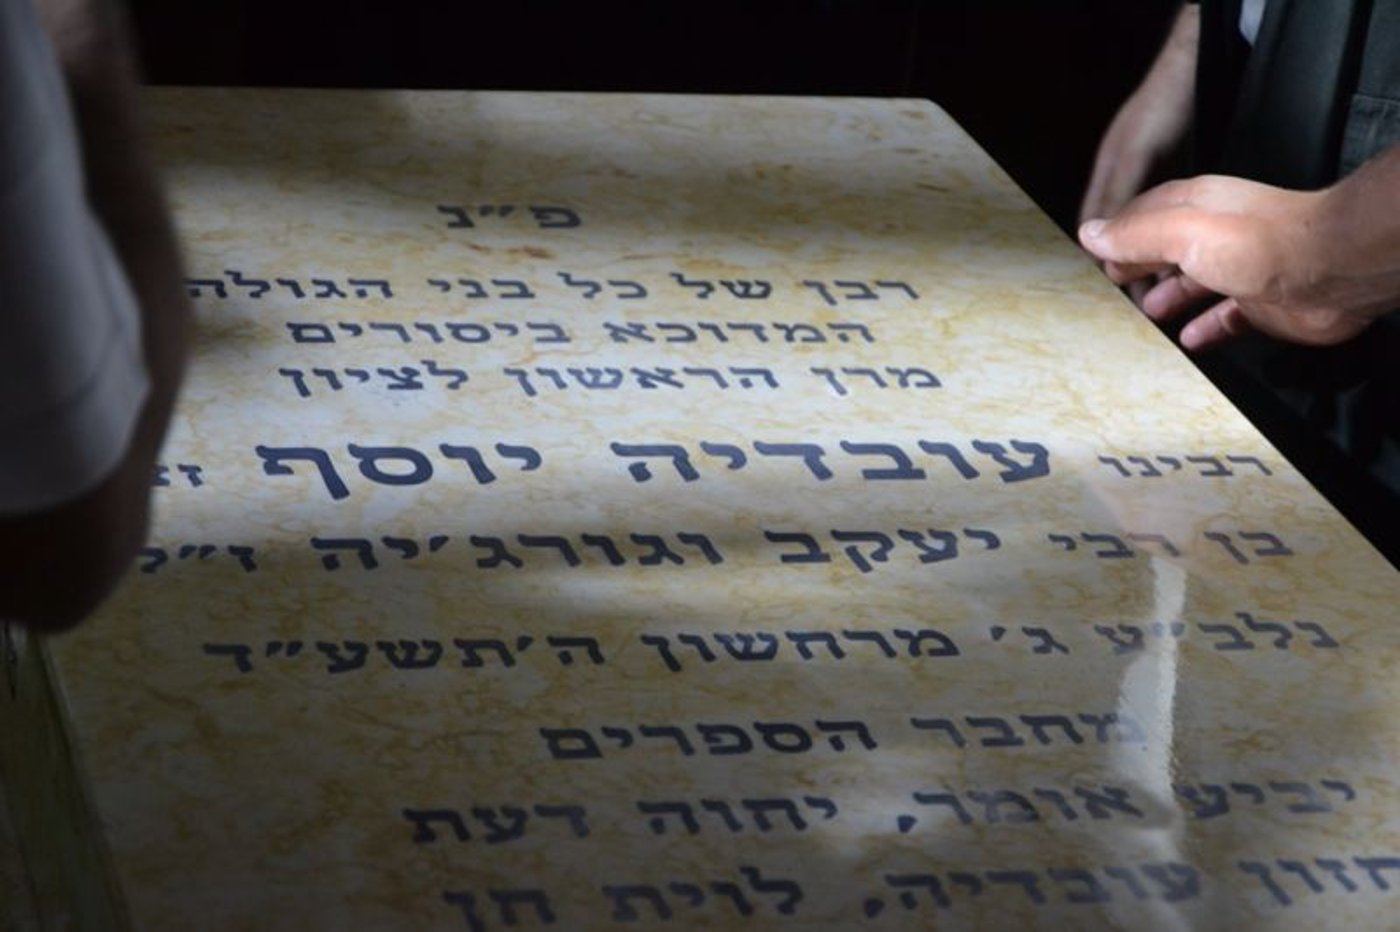 פ״נ
רבן של כל בני הגולה
המדוכא ביסורים
מרן הראשון לציון
רבינו עובדיה יוסף
בן רבי יעקב וגורג׳יה ז״ל
נלב״ע ג׳ מרחשון ה׳תשע״ד
מחבר הספרים
יביע אומר, יחוה דעת
חזון עובדיה, לוית חן